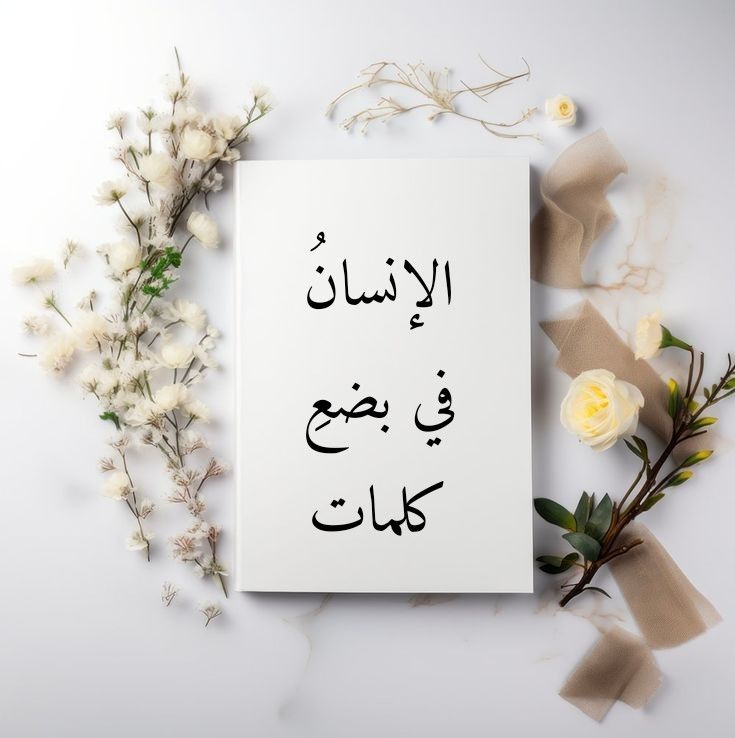 الإنسانُ
في بضعِ
كلمات